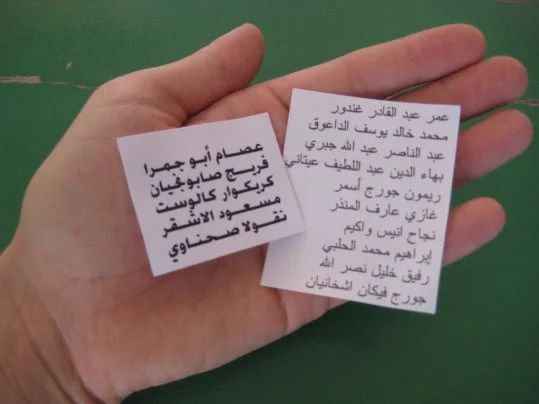 عصام أبو جمرا
فريج صابونجيان
كريكوار كالوست
مسعود الاشقر
نقولا صحناوي
عمر عبد القادر غندور
محمد خالد يوسف الداعوق
عبد الناصر عبد الله جبري
بهاء الدين عبد اللطيف عيتاني
ريمون جورج أسمر
غازي عارف المنذر
نجاح انيس واكيم
إبراهيم محمد الحلبي
رفيق خليل نصر الله
جورج فيكان اشخانيان